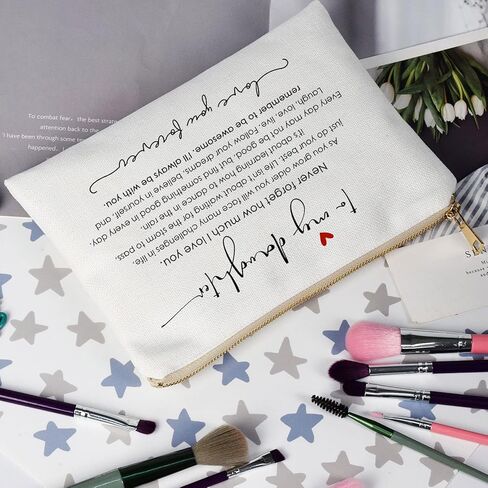 To combat fear, the best strat
attention back to the
to my daughter
Never forget how much I love you.
As you grow older you will face many challenges in life,
just do your best. Life isn't about waiting for the storm to pass.
it's about learning how to dance in the rain.
Every day may not be good, but find something good in every day.
Laugh, love, live. Follow your dreams, believe in yourself and
remember to be awesome. I'll always be with you.
love you forever
SI
because